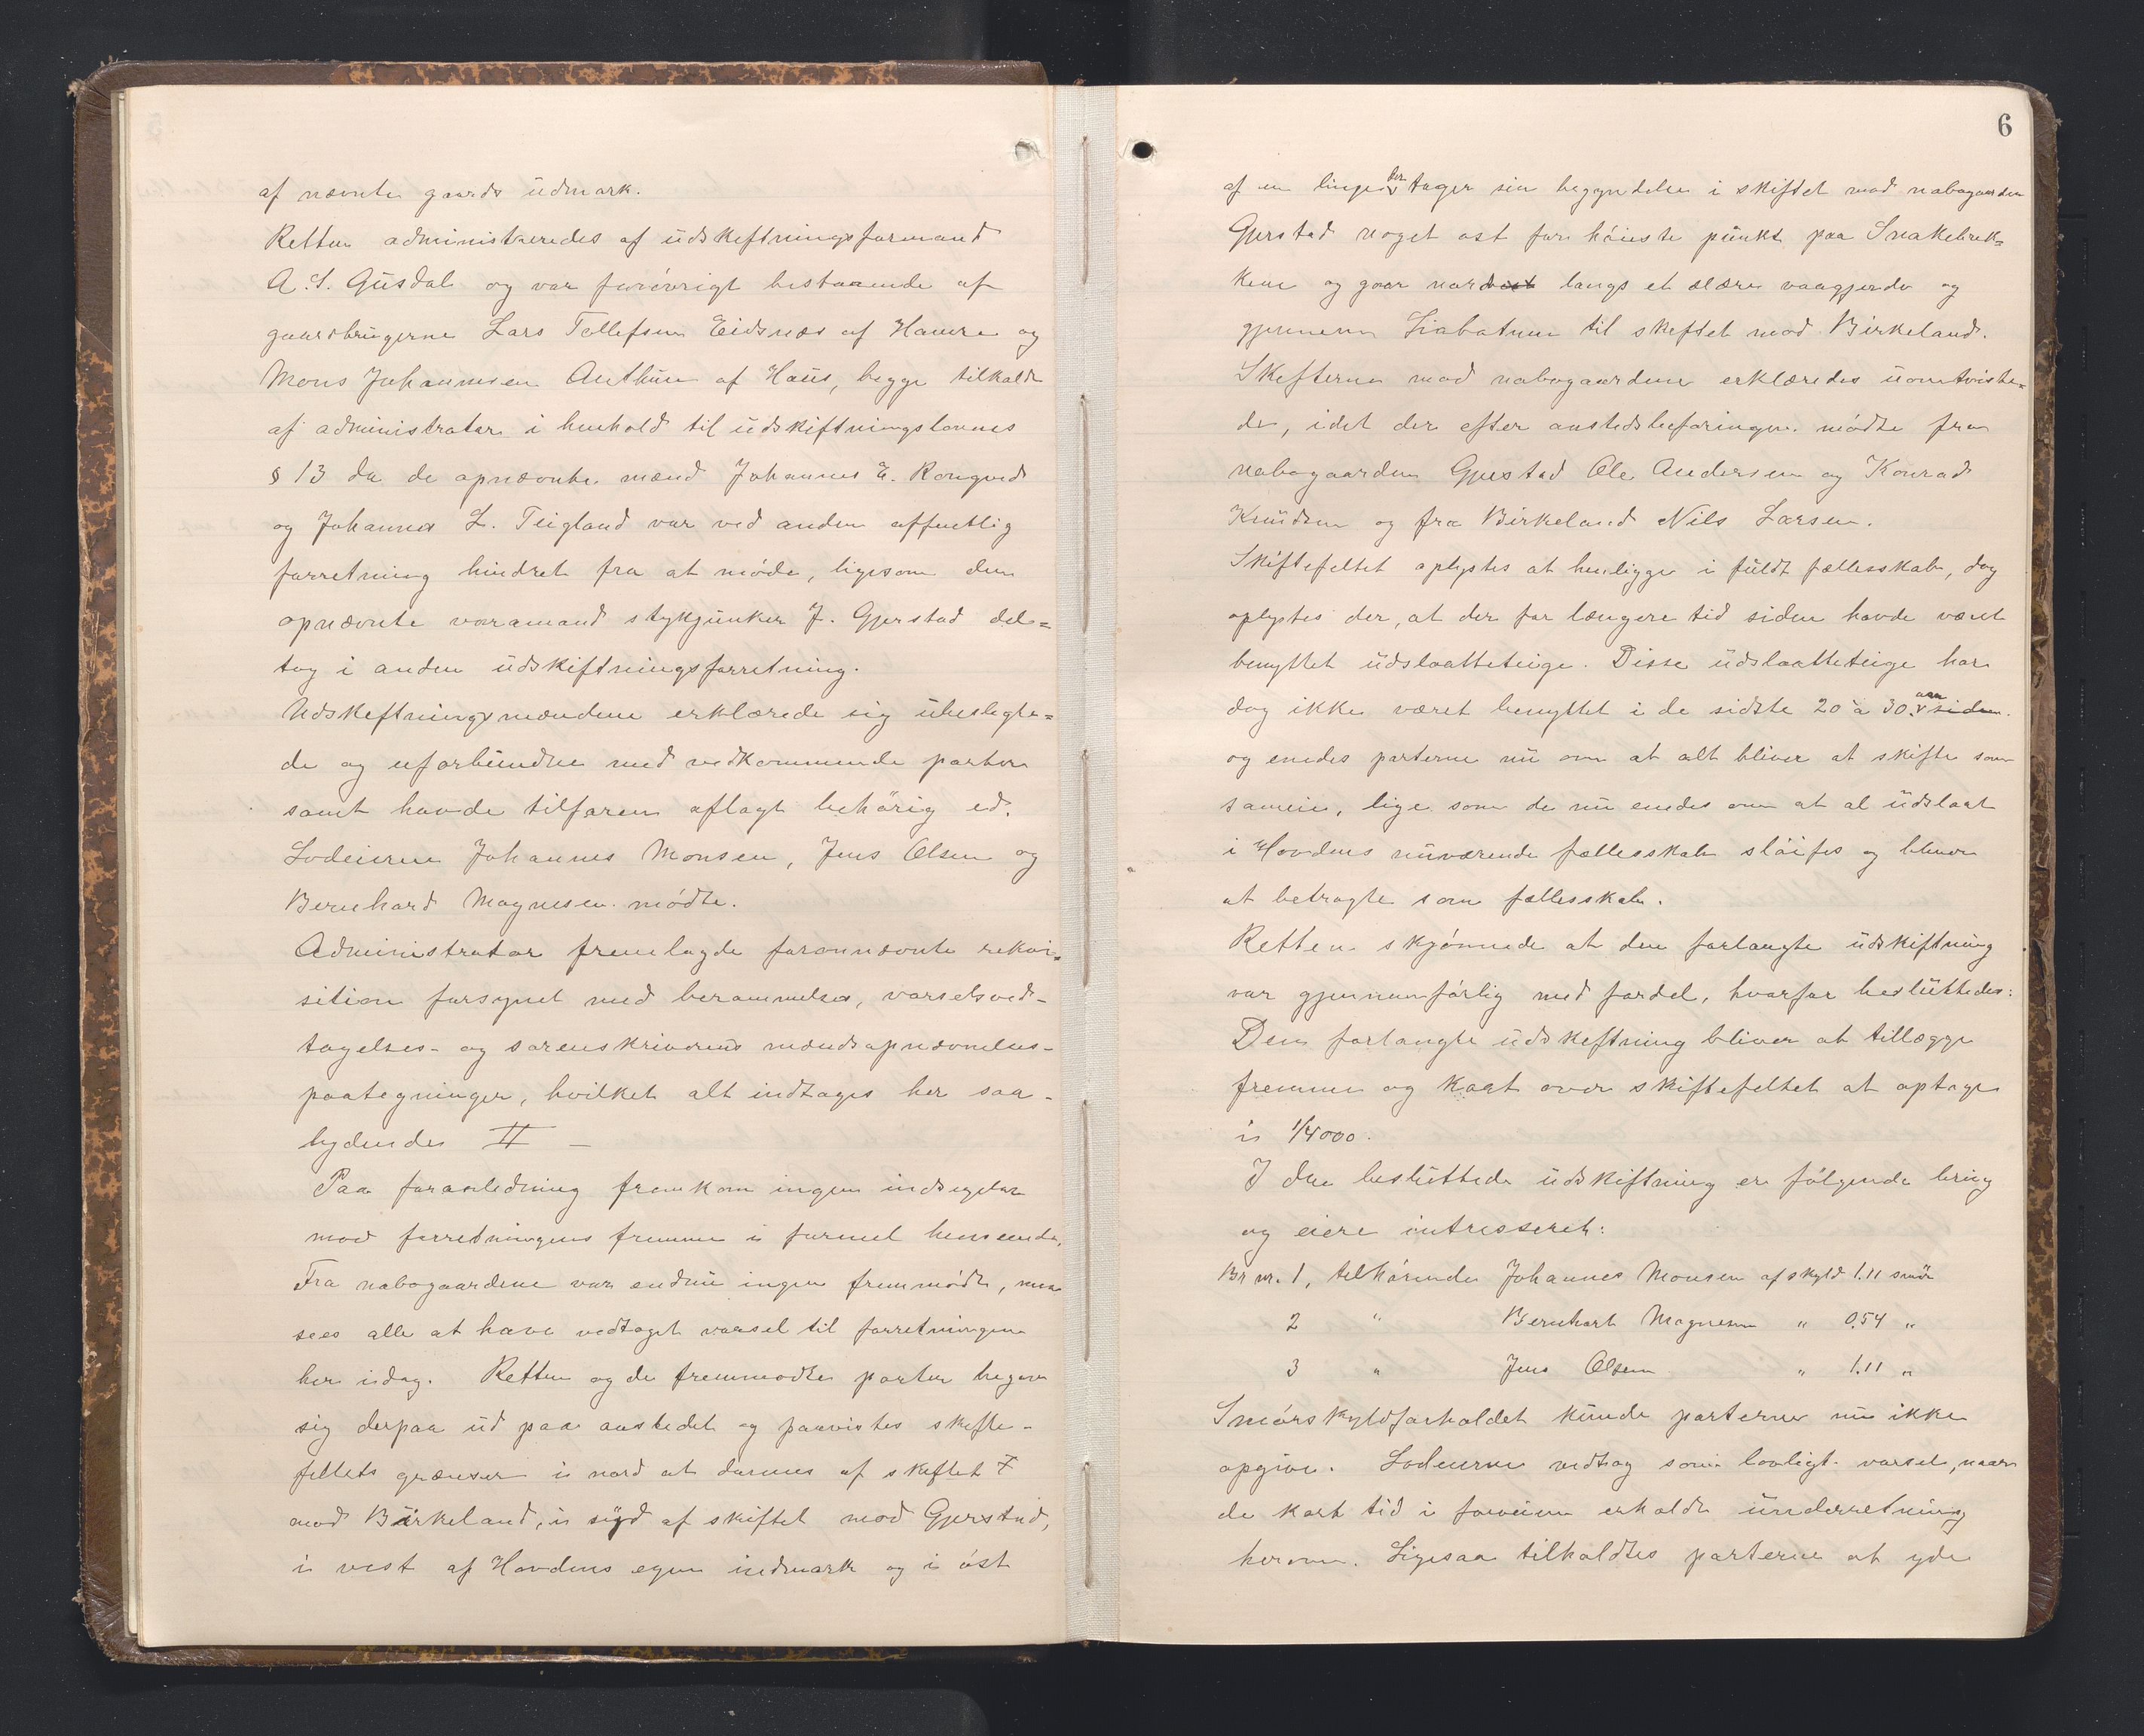 af nævnte gaards udmark.
Retten administreredes af udskiftningsformand
A. S. Gusdal og var forøvrigt bestaaende af
gaardbrugerne Lars Tollefsen Eidsnæs af Hamre og
Mons Johannesen Arthun af Haus, begge tilkaldt
af administrator i henhold til udskiftningslovens
§ 13 da de opnævnte mænd Johannes E. Rongved
og Johannes L. Teigland var ved anden offentlig
forretning hindret fra at møde, ligesom den
opnævnte varamand stykjunker J. Gjerstad del=
tog i anden udskiftningsforretning.
Udskiftningsmændene erklærede sig ubeslegte=
de og uforbundne med vedkommende parter
samt havde tilforn aflagt behørig ed.
Lodeierne Johannes Monsen, Jens Olsen og
Bernhard Magnesen mødte.
Administrator fremlagde forannævnte rekvi=
sition forsynet med berammelses, varselsved-
tagelses- og sorenskriverens mændsopnævnelses-
paategninger, hvilket alt indtages her saa-
lydende II —
Paa foranledning fremkom ingen indsigelser
mod forretningens fremme i formel henseende.
Fra nabogaardene var endnu ingen fremmødt, men
sees alle at have vedtaget varsel til forretningen
her idag. Retten og de fremmødte parter begav
sig derpaa ud paa aastedet og paavistes skifte-
feltets grænser i nord at dannes af skiftet
mod Birkeland, i syd af skiftet mod Gjerstad,
i vest af Hovdens egen indmark og i øst
6
af en linje der tager sin begyndelse i skiftet mod nabogaarden
Gjerstad noget øst for høieste punkt paa Snakebrek=
kene og gaar nordvest langs et ældre vaagjerde og
gjennem Liabotnen til skiftet mod Birkeland.
Skifterne mod nabogaardene erklæredes uomtviste=
de, idet der efter aastedsbefaringen mødte fra
nabogaarden Gjerstad Ole Andersen og Konrad
Knudsen og fra Birkeland Nils Larsen.
Skiftefeltet oplystes at henligge i fuldt fællesskab, dog
oplystes der, at der for længere tid siden havde været
benyttet udslaatteteige. Disse udslaatteteige har
dog ikke været benyttet i de sidste 20 à 30 aar siden.
og enedes parterne nu om at alt bliver at skifte som
sameie, lige som de nu enedes om at al udslaat
i Hovdens nuværende fællesskab sløifes og bliver
at betragte som fællesskab.
Retten skjønnede at den forlangte udskiftning
var gjennemførlig med fordel, hvorfor besluttedes:
Den forlangte udskiftning bliver at tillægge
fremme og kart over skiftefeltet at optage
i 1/4000.
I den besluttede udskiftning er følgende brug
og eiere intresseret:
Br nr. 1, tilhørende Johannes Monsen af skyld 1.11 smør
2 " Bernhart Magnesen " 0.54 "
3 " Jens Olsen " 1.11 "
Smørskyldforholdet kunde parterne nu ikke
opgive. Lodeierne vedtog som lovligt varsel, naar
de kort tid i forveien erholdt underretning
herom. Ligesaa tilholdtes parterne at yde